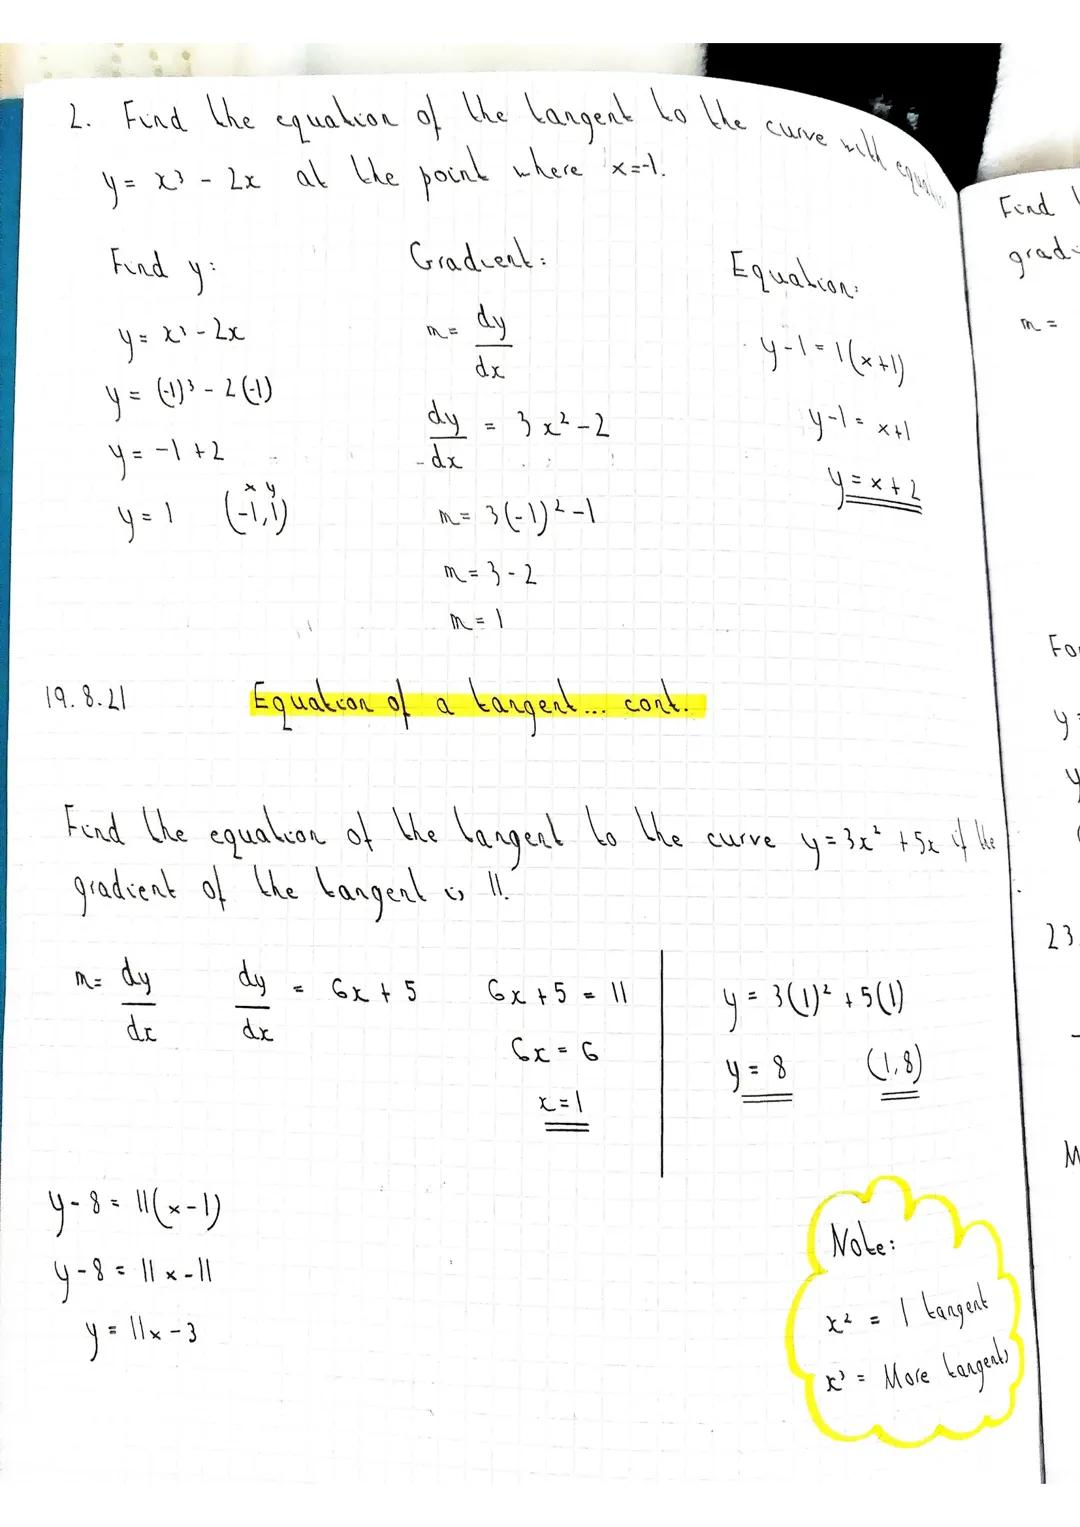 2. Find the equation of the tangent to the curve with equation
y = x³ - 2x at the point where x=-1.
Find y:
y = x³ - 2x
y = (-1)³ - 2(-1)
y = -1 + 2
x y
y = 1 (-1,1)
Gradient:
m = dy/dx
dy/dx = 3x² - 2
m = 3(-1)² - 1
m = 3 - 2
m = 1
Equation:
y - 1 = 1(x+1)
y - 1 = x+1
y = x + 2
19.8.21 Equation of a tangent... cont.
Find the equation of the tangent to the curve y = 3x² + 5x if the
gradient of the tangent is 11.
m = dy/dx dy/dx = 6x + 5
6x + 5 = 11
6x = 6
x = 1
y = 3(1)² + 5(1)
y = 8 (1,8)
y - 8 = 11(x - 1)
y - 8 = 11x - 11
y = 11x - 3
Note:
x² = 1 tangent
x³ = More tangents
Find
m =
y =
y
23.